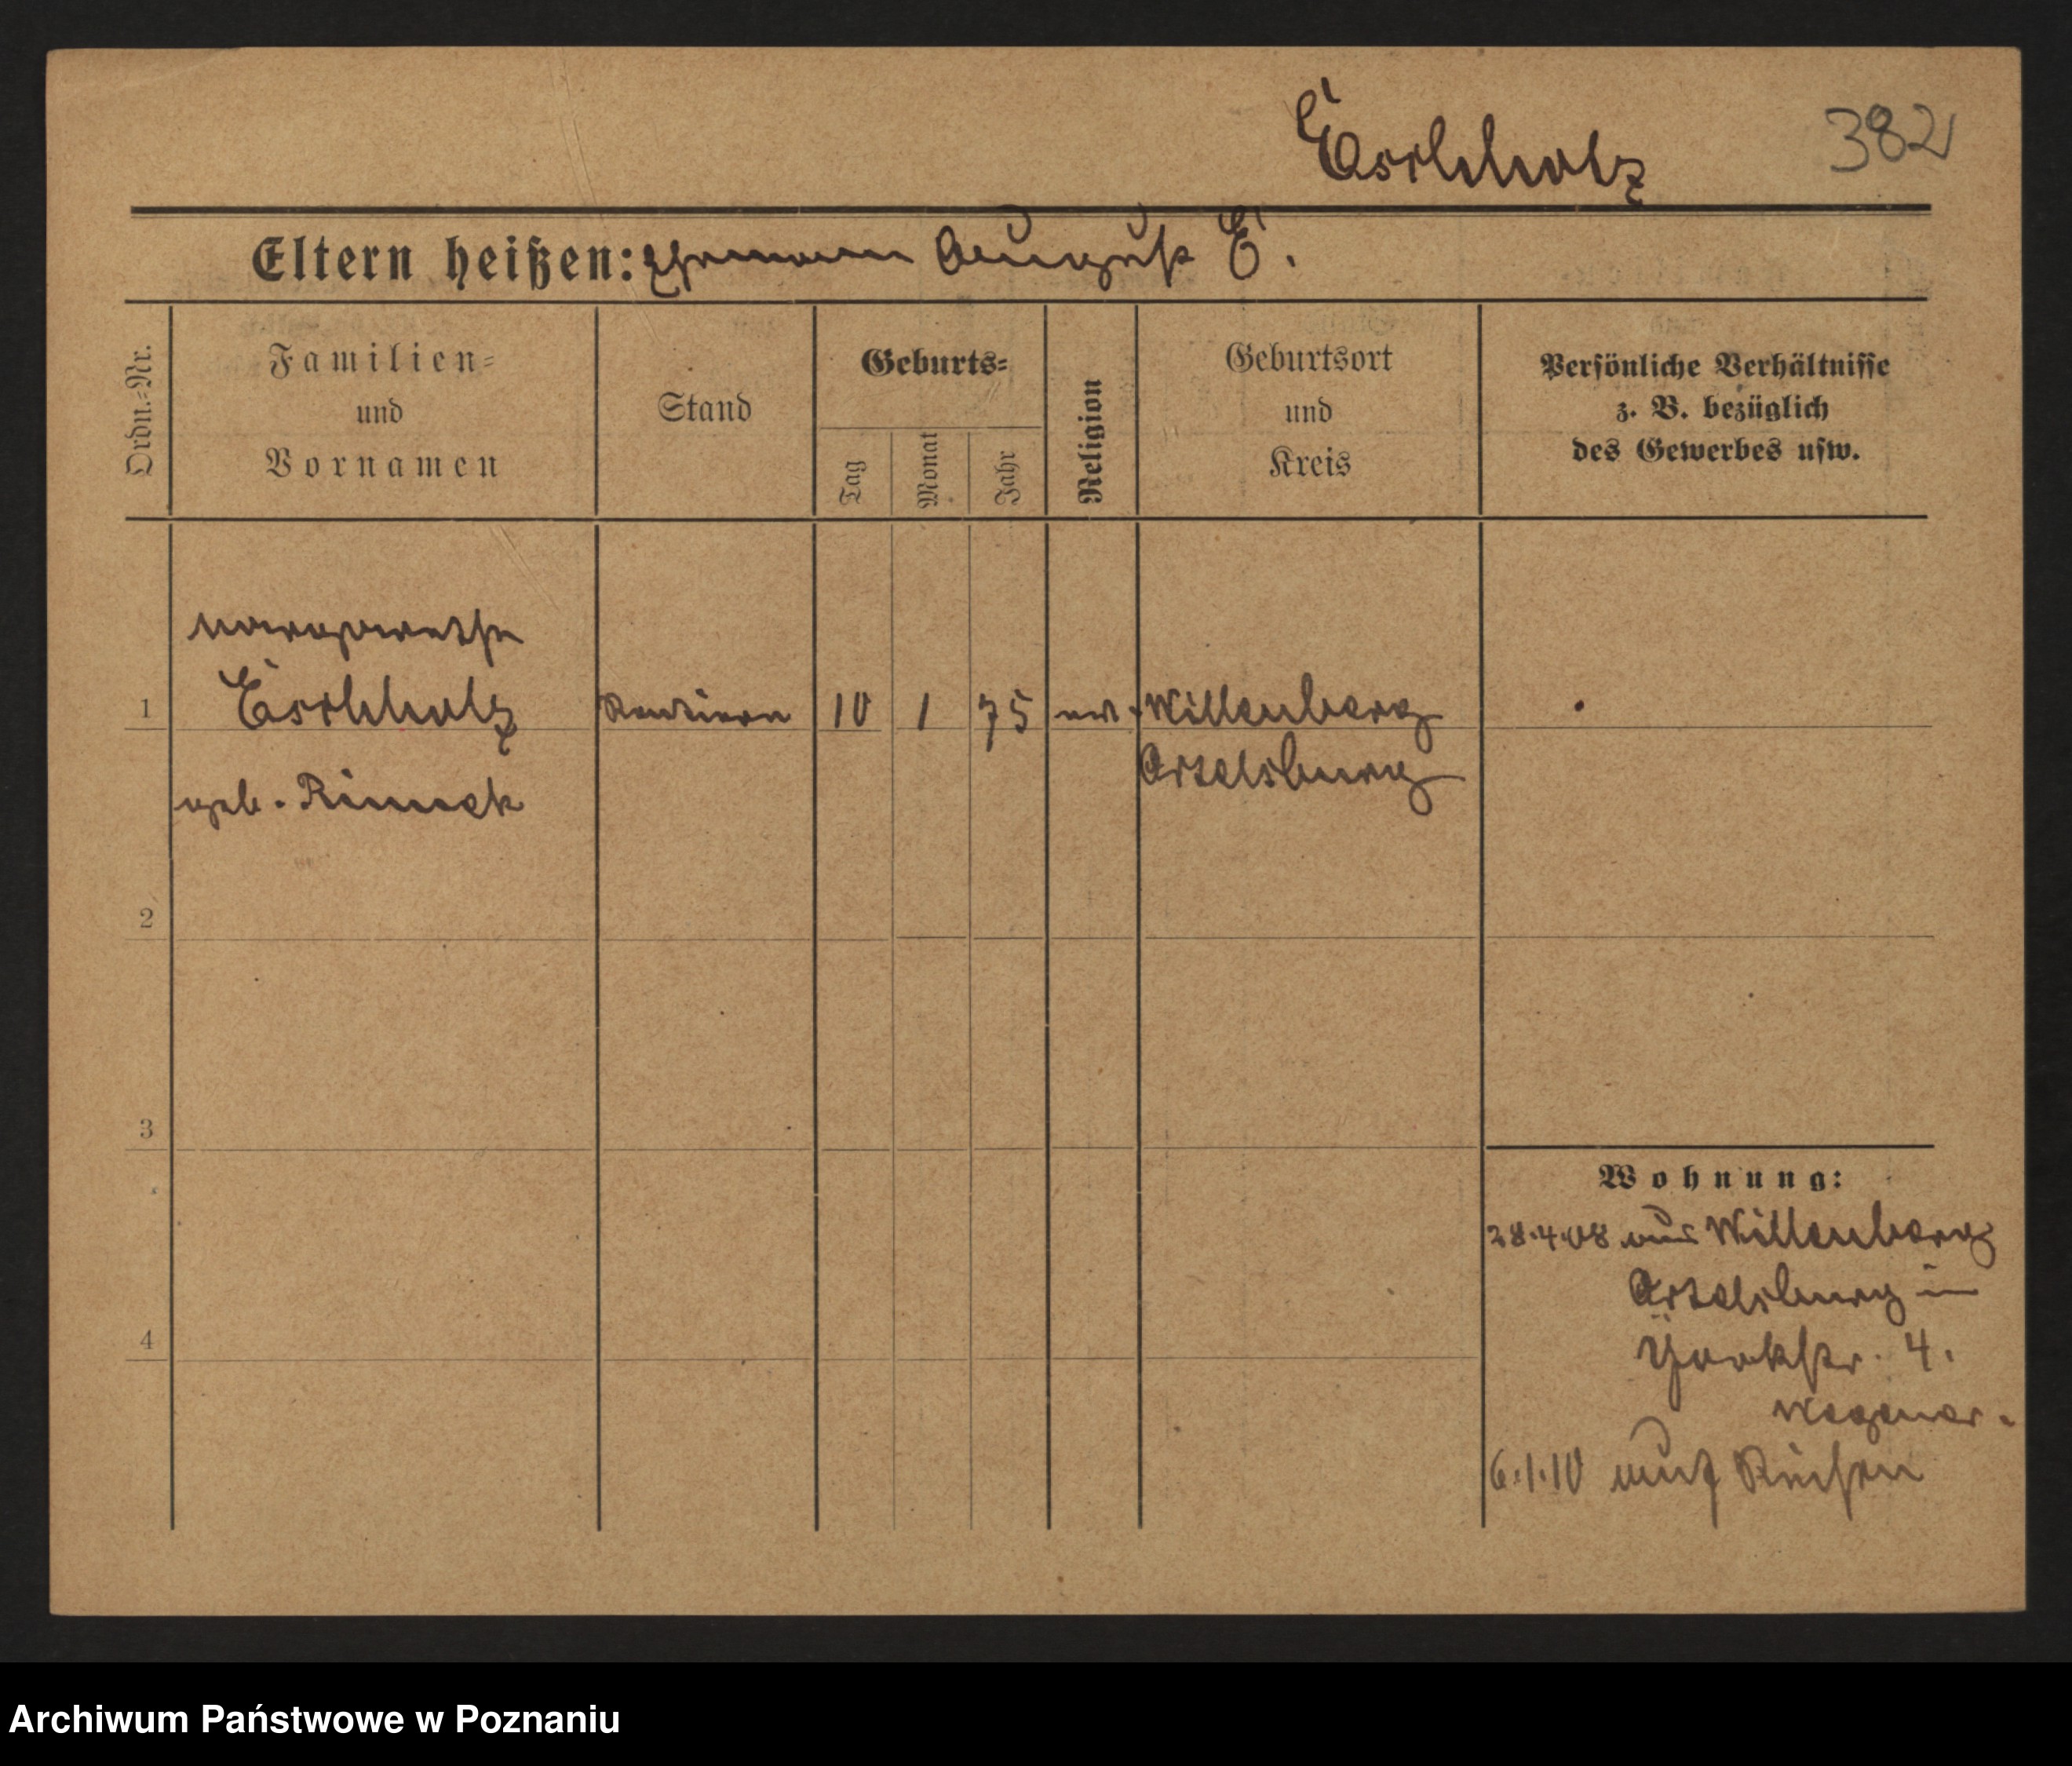 Eschholz 382
Eltern heißen: Ehemann August E.
Ordn.-Nr.
Familien-
und
Vornamen
Stand
Geburts-
Tag
Monat
Jahr
Religion
Geburtsort
und
Kreis
Persönliche Verhältnisse
z. B. bezüglich
des Gewerbes usw.
Margarethe
1 Eschholz 10 1 75 Willenberg
Ortelsburg
geb.
2
3
4
Wohnung:
28.4.08 aus Willenberg
Ortelsburg in
Yorkstr. 4.
Wegener.
6.1.10 auf Reisen
Archiwum Państwowe w Poznaniu